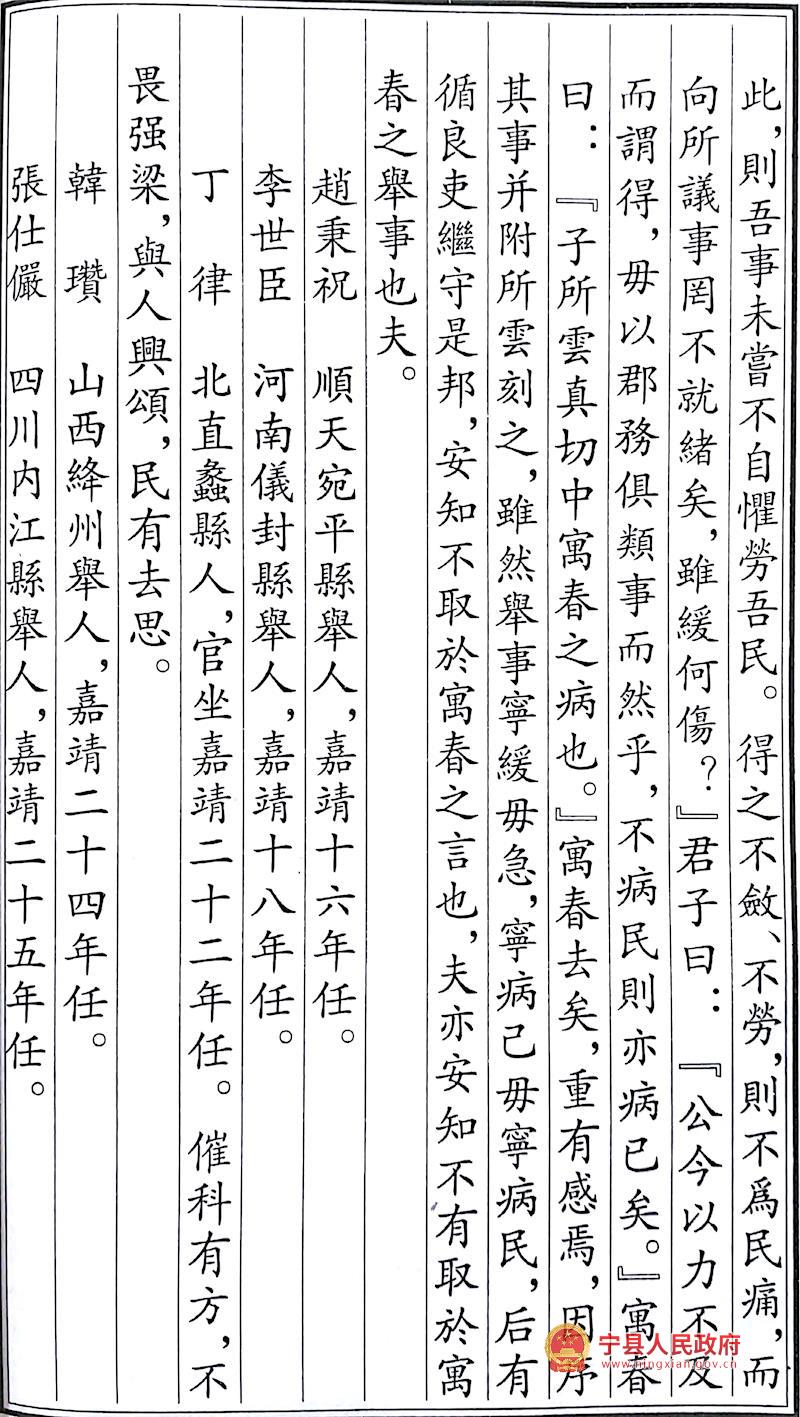 此，則吾事未嘗不自懼勞吾民。得之不斂、不勞，則不爲民痛，而
向所議事罔不就緒矣，雖緩何傷？』君子曰：『公今以力不及
而謂得，毋以郡務俱類事而然乎，不病民則亦病已矣。』寓春
曰：『子所雲真切中寓春之病也。』寓春去矣，重有感焉，因序
其事并附所雲刻之，雖然舉事寧緩毋急，寧病己毋寧病民，后有
循良吏繼守是邦，安知不取於寓春之言也，夫亦安知不有取於寓
春之舉事也夫。
趙秉祝　順天宛平縣舉人，嘉靖十六年任。
李世臣　河南儀封縣舉人，嘉靖十八年任。
丁　律　北直蠡縣人，官坐嘉靖二十二年任。催科有方，不
畏强梁，與人興頌，民有去思。
韓　瓚　山西絳州舉人，嘉靖二十四年任。
張仕儼　四川内江縣舉人，嘉靖二十五年任。
宁县人民政府
www.ningxian.gov.cn